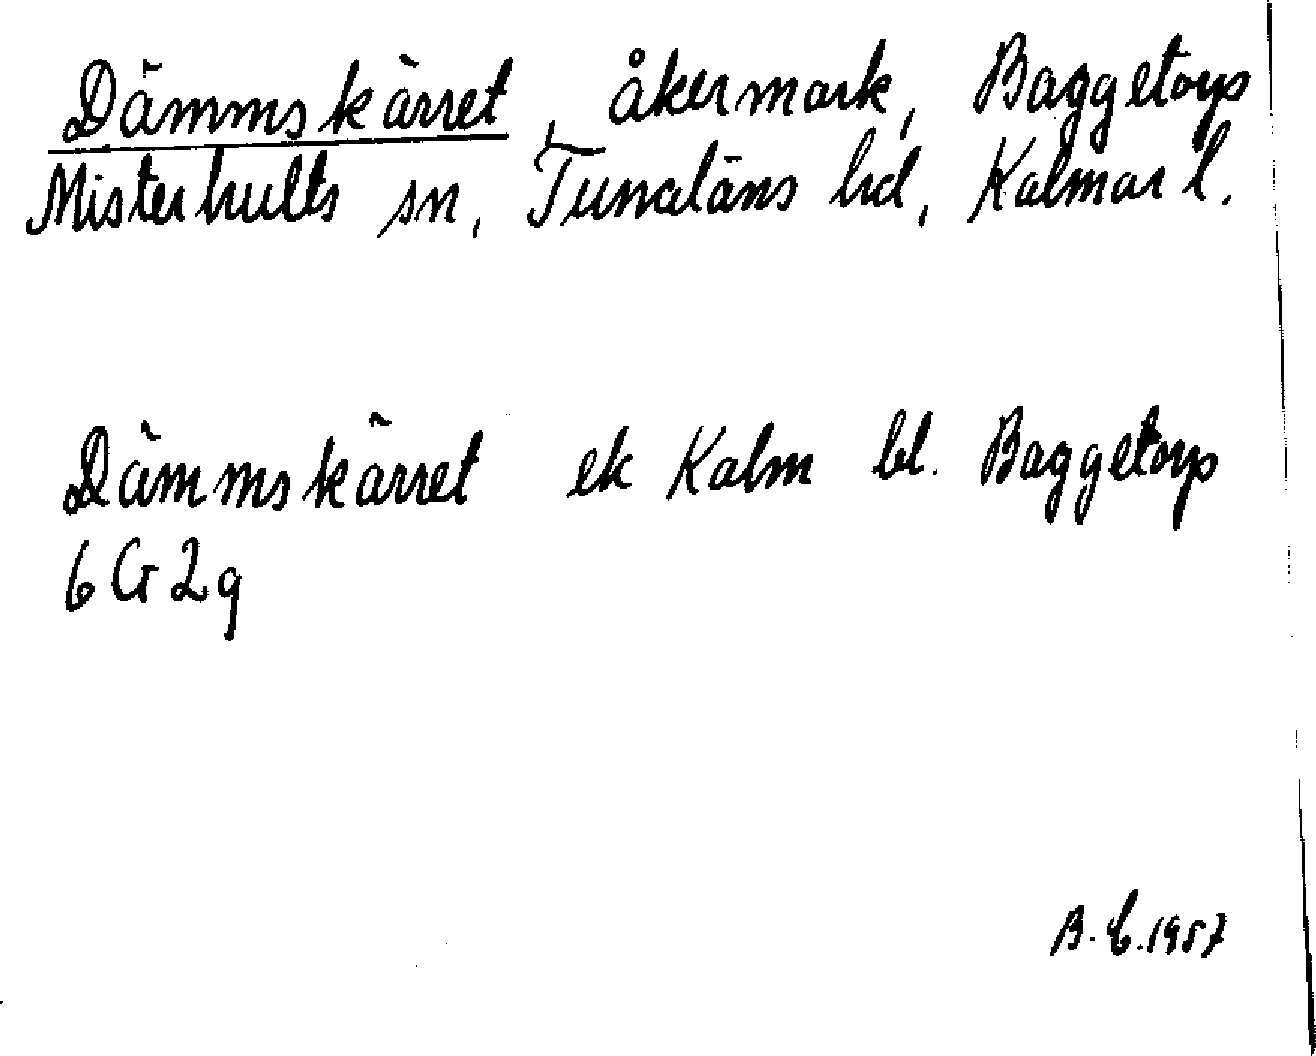 Dämmskärret, åkermark, Baggetorp
Misterhults sn, Tunaläns hd, Kalmar l.
Dämmskärret ek Kalm bl. Baggetorp
6 G 2 g
B. C. 1957